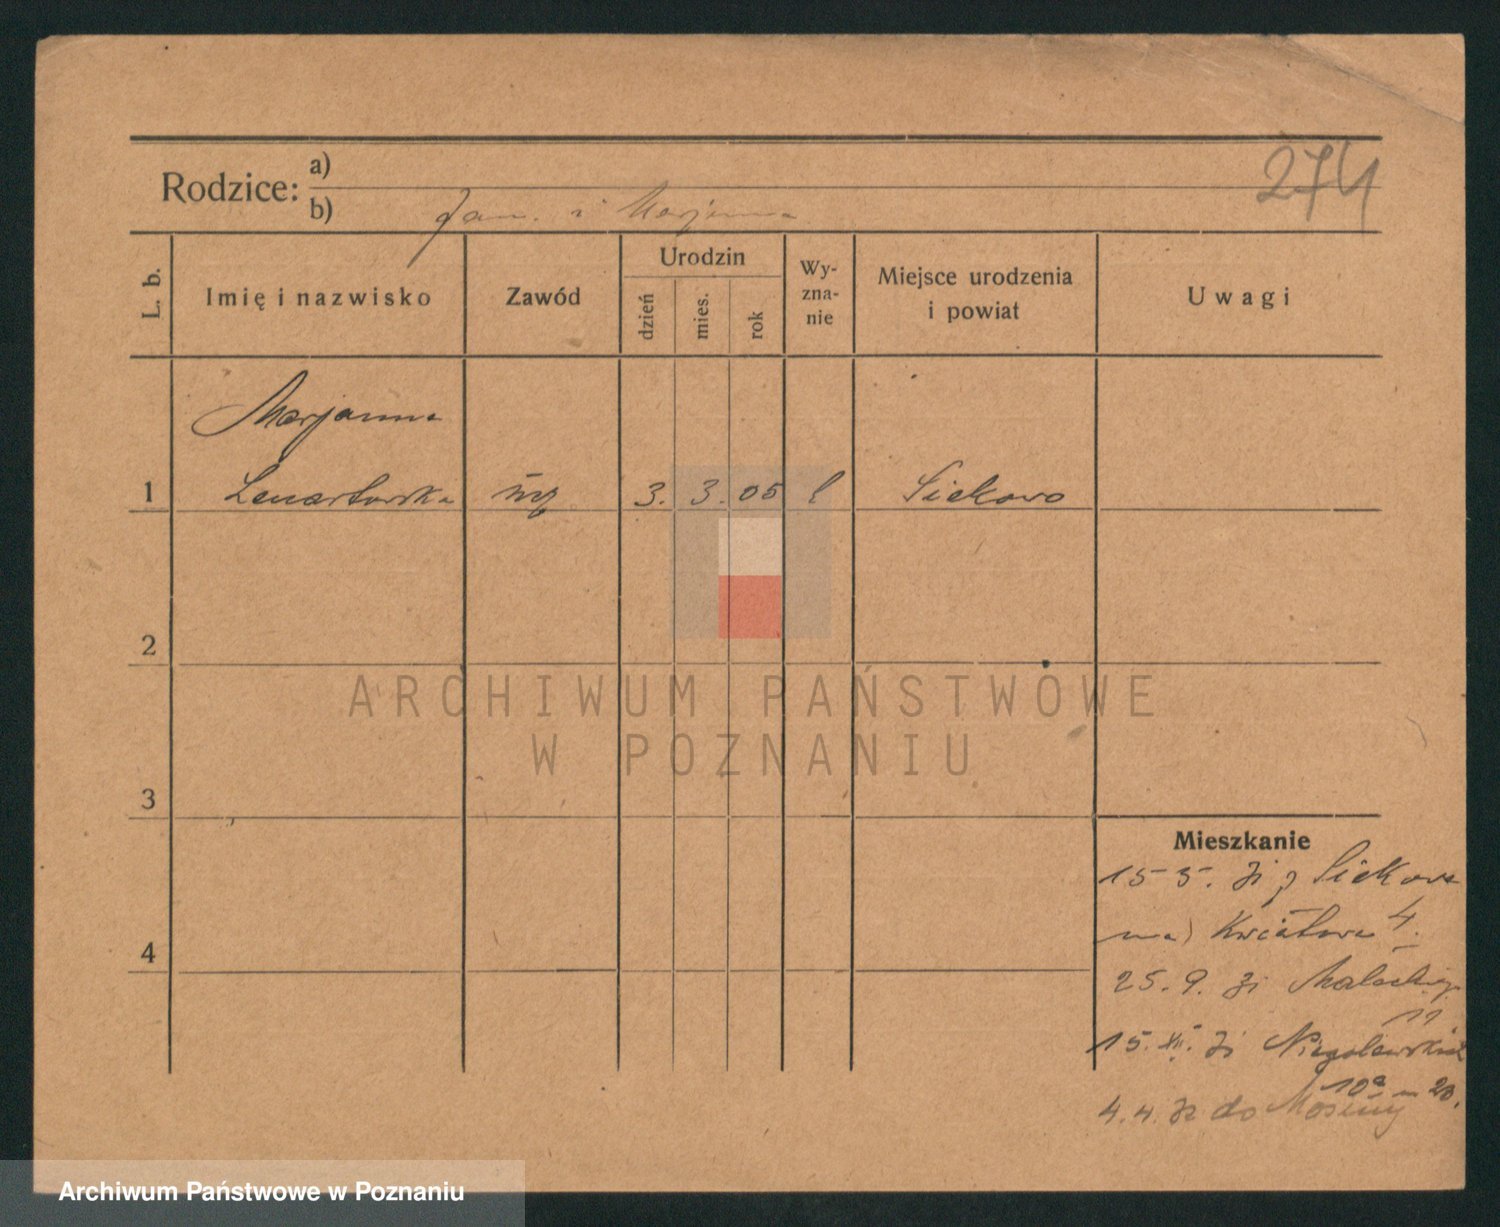 274
Rodzice:
a)
b) Jan i Marjanna
L. b.
Imię i nazwisko
Zawód
Urodzin
dzień
mies.
rok
Wy-
zna-
nie
Miejsce urodzenia
i powiat
Uwagi
Marjanna
1 Lenartowska 3. 3. 05 Siekowo
2
3
4
ARCHIWUM PAŃSTWOWE
W POZNANIU
Mieszkanie
15 5. 31 z Siekowa
na) Kwiatowa 4.
25. 9. 31 Małeckiego
11
15. XII. 31 Niegolewskich
10a m 20.
4. 4. 32 do Mosiny
Archiwum Państwowe w Poznaniu